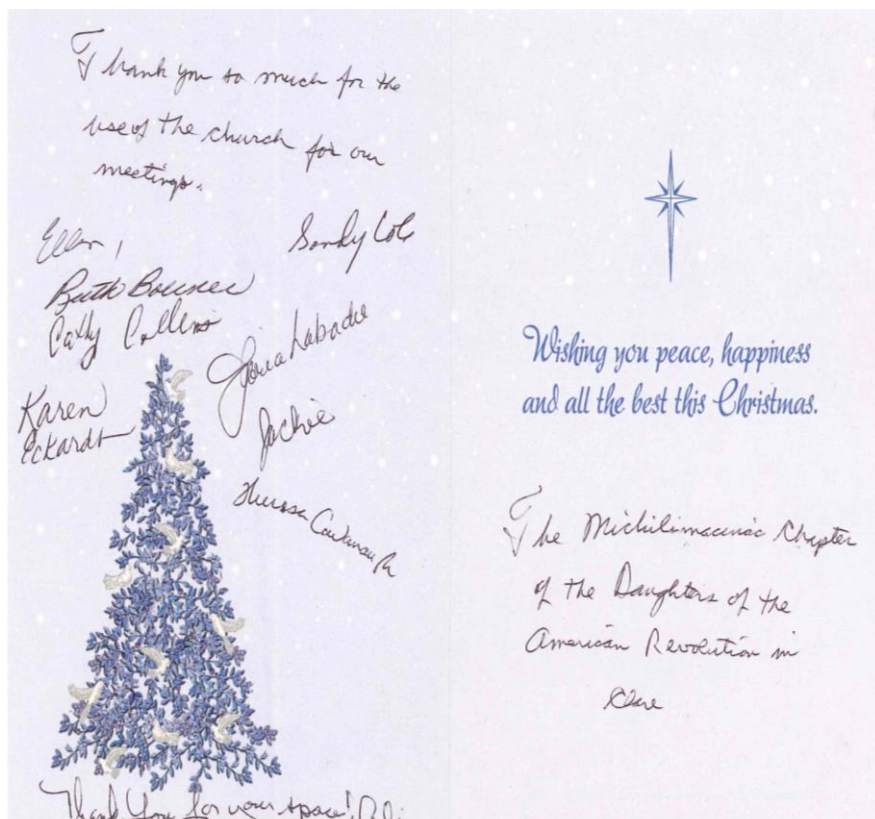 Thank you so much for the
use of the church for our
meetings.
Ellen,
Sandy Cole
Ruth
Cathy Collins
Gloria Labadie
Karen
Eckardt
Jackie
Theresa
Thank You for your space!
Wishing you peace, happiness
and all the best this Christmas.
The Michilimacinac Chapter
of the Daughters of the
American Revolution in
Clare